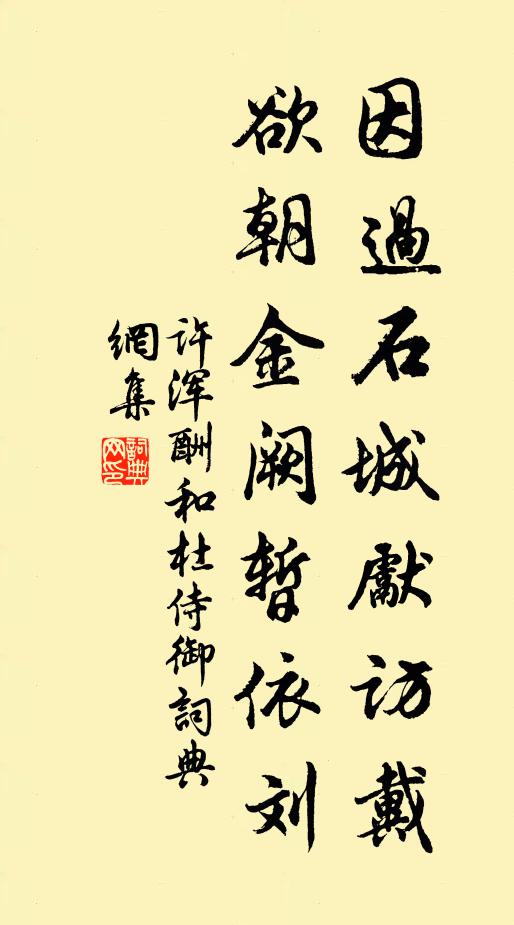 因過石城獻訪戴
欲朝金闕暫依刘
许浑酬和杜侍御詞典
網集
詞典
网印